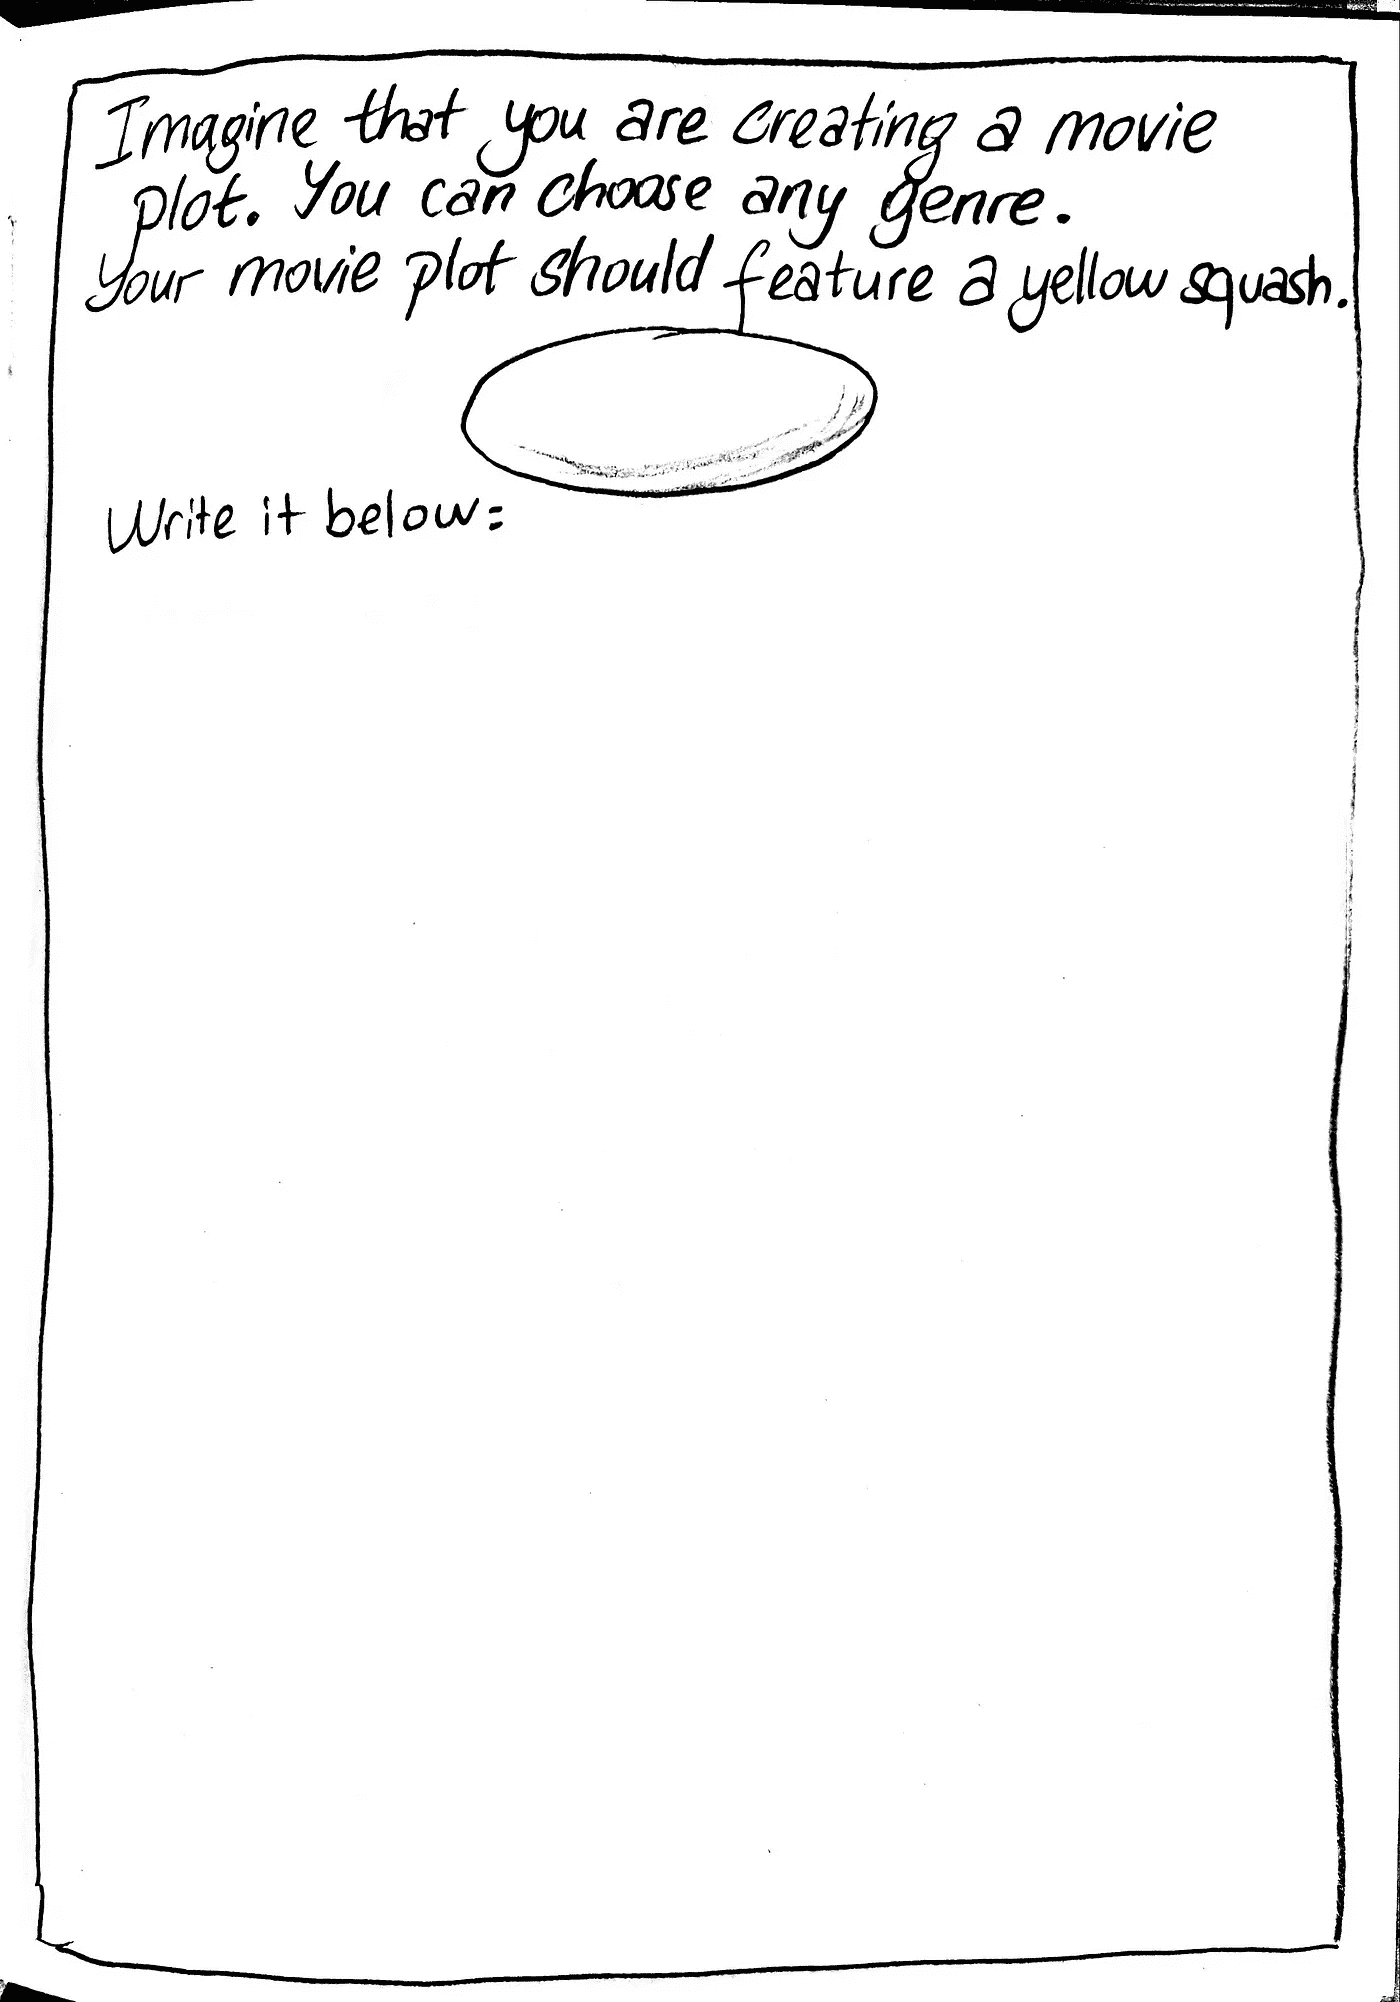 Imagine that you are creating a movie
plot. You can choose any genre.
Your movie plot should feature a yellow squash.
Write it below: